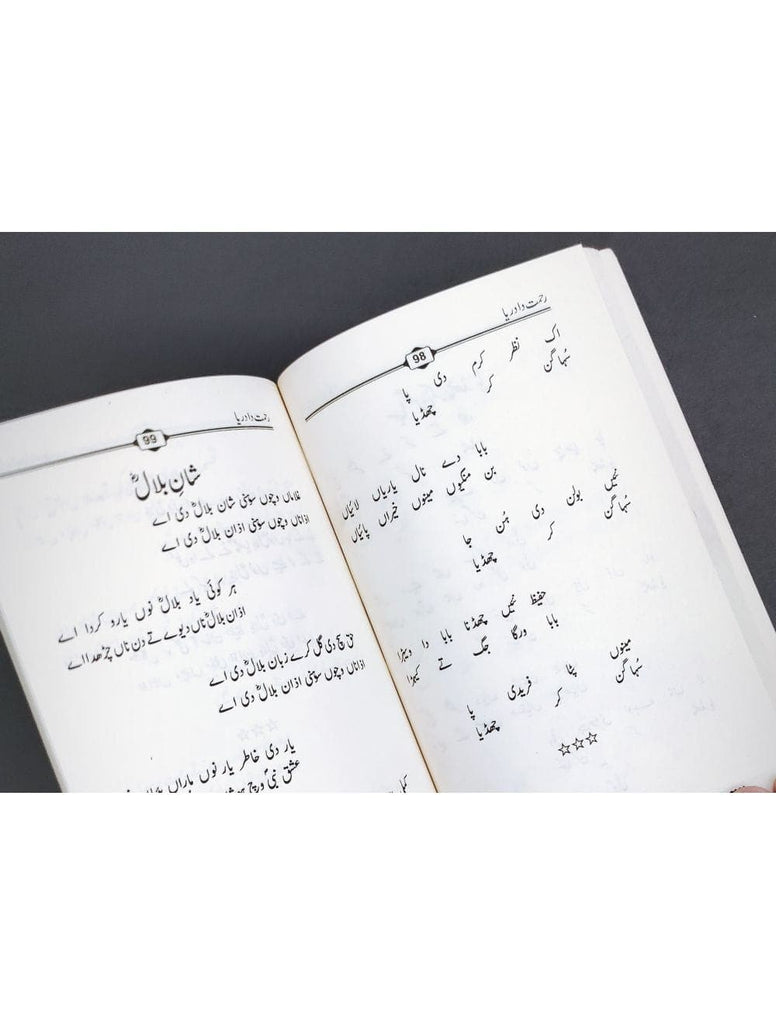 رحمت دا دریا
98
اک نظر کرم دی پا
سُہاگن کر چھڈیا
بابا دے نال یاریاں لائیاں
بن منگیوں مینوں خیراں پائیاں
نہیں بولن دی ہُن جا
سُہاگن کر چھڈیا
حفیظ نہیں چھڈنا بابا دا ویہڑا
بابا ورگا جگ تے کیہڑا
مینوں پٹا فریدی پا
سُہاگن کر چھڈیا
☆☆☆
رحمت دا دریا
99
شانِ بلالؓ
غلاماں وچوں سوہنی شان بلالؓ دی اے
اذاناں وچوں سوہنی اذان بلالؓ دی اے
ہر کوئی یاد بلالؓ نوں یارو کردا اے
اذان بلالؓ ناں دیوے تے دن ناں چڑھدا اے
حق سچ دی گل کرے زبان بلالؓ دی اے
اذاناں وچوں سوہنی اذان بلالؓ دی اے
یار دی خاطر یار نوں ماراں
عشق نبیؐ وچ